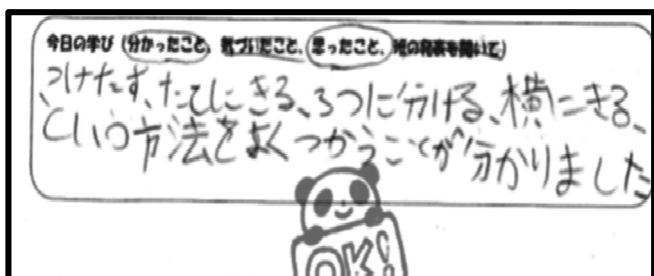 今日の学び(分かったこと、気づいたこと、思ったこと、班の発表を聞いて)
つけたす、たてにきる、3つに分ける、横にきる、
という方法をよくつかうことが分かりました
OK!